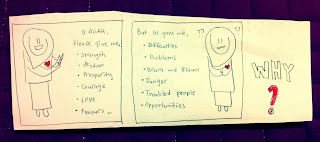 O ALLAH,
Please give me,
• Strength
• Wisdom
• Prosperity
• Courage
• LOVE
• Favours ...
But He gave me,
• Difficulties
• Problems
• Brain and Brawn
• Danger
• Troubled people
• Opportunities
??
??
WHY
?